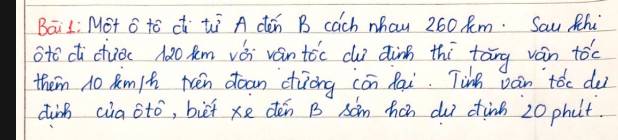 Bài 1: Một ô tô đi từ A đến B cách nhau 260 km. Sau khi
ôtô đi được 120 km với vận tốc dự định thì tăng vận tốc
thêm 10 km/h trên đoạn đường còn lại. Tính vận tốc dự
định của ôtô, biết xe đến B sớm hơn dự định 20 phút.